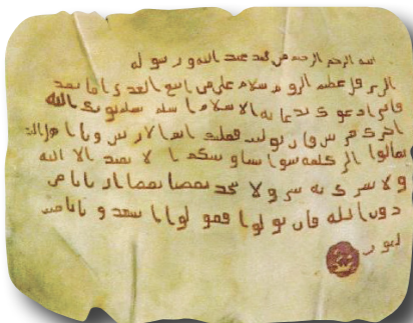 بسم الله الرحمن الرحيم من محمد عبد الله ورسوله
الى هرقل عظيم الروم سلام على من اتبع الهدى اما بعد
فانى ادعوك بدعاية الاسلام اسلم تسلم يوتك الله
اجرك مرتين فان توليت فعليك اثم الاريسين ويا اهل الكتب
تعالوا الى كلمة سوا بيننا وبينكم الا نعبد الا الله
ولا نشرك به شيا ولا يتخذ بعضنا بعضا اربابا من
دون الله فان تولوا فقولوا اشهدوا بانا مس
لمون